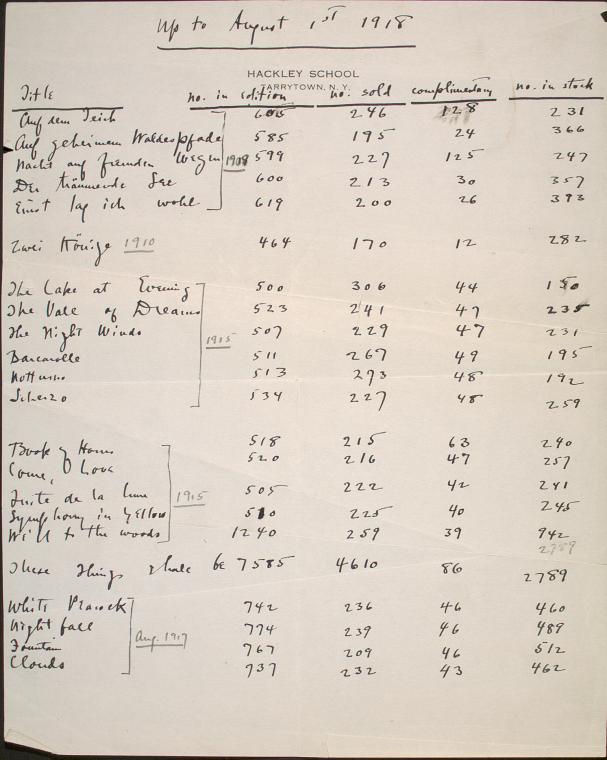 Up to August 1ST 1918
HACKLEY SCHOOL
TARRYTOWN, N.Y.
Title no. in edition no. sold complimentary no. in stock
Auf dem Teich 605 246 128 231
Auf geheimem Waldespfade 585 195 24 366
Nacht auf fremden Wegen 1908 599 227 125 247
Der träumende See 600 213 30 357
Einst lag ich wohl 619 200 26 393
Zwei Könige 1910 464 170 12 282
The Lake at Evening 500 306 44 150
The Vale of Dreams 523 241 47 235
The Night Winds 507 229 47 231
1915
Barcarolle 511 267 49 195
Notturno 513 273 48 192
Scherzo 534 227 48 259
Book of Hours 518 215 63 240
Come, O Love 520 216 47 257
Fuite de la lune 1915 505 222 42 241
Symphony in Yellow 510 225 40 245
We'll to the woods 1240 259 39 942
2789
These things shall be 7585 4610 86 2789
White Peacock 742 236 46 460
Nightfall 774 239 46 489
Aug. 1917
Fountain 767 209 46 512
Clouds 737 232 43 462